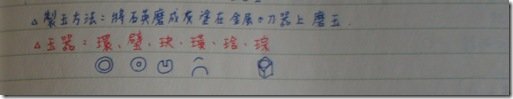 △製玉方法:將石英磨成灰塗在金屬刀器上磨玉.
△玉器:環、璧、玦、璜、琀、琮